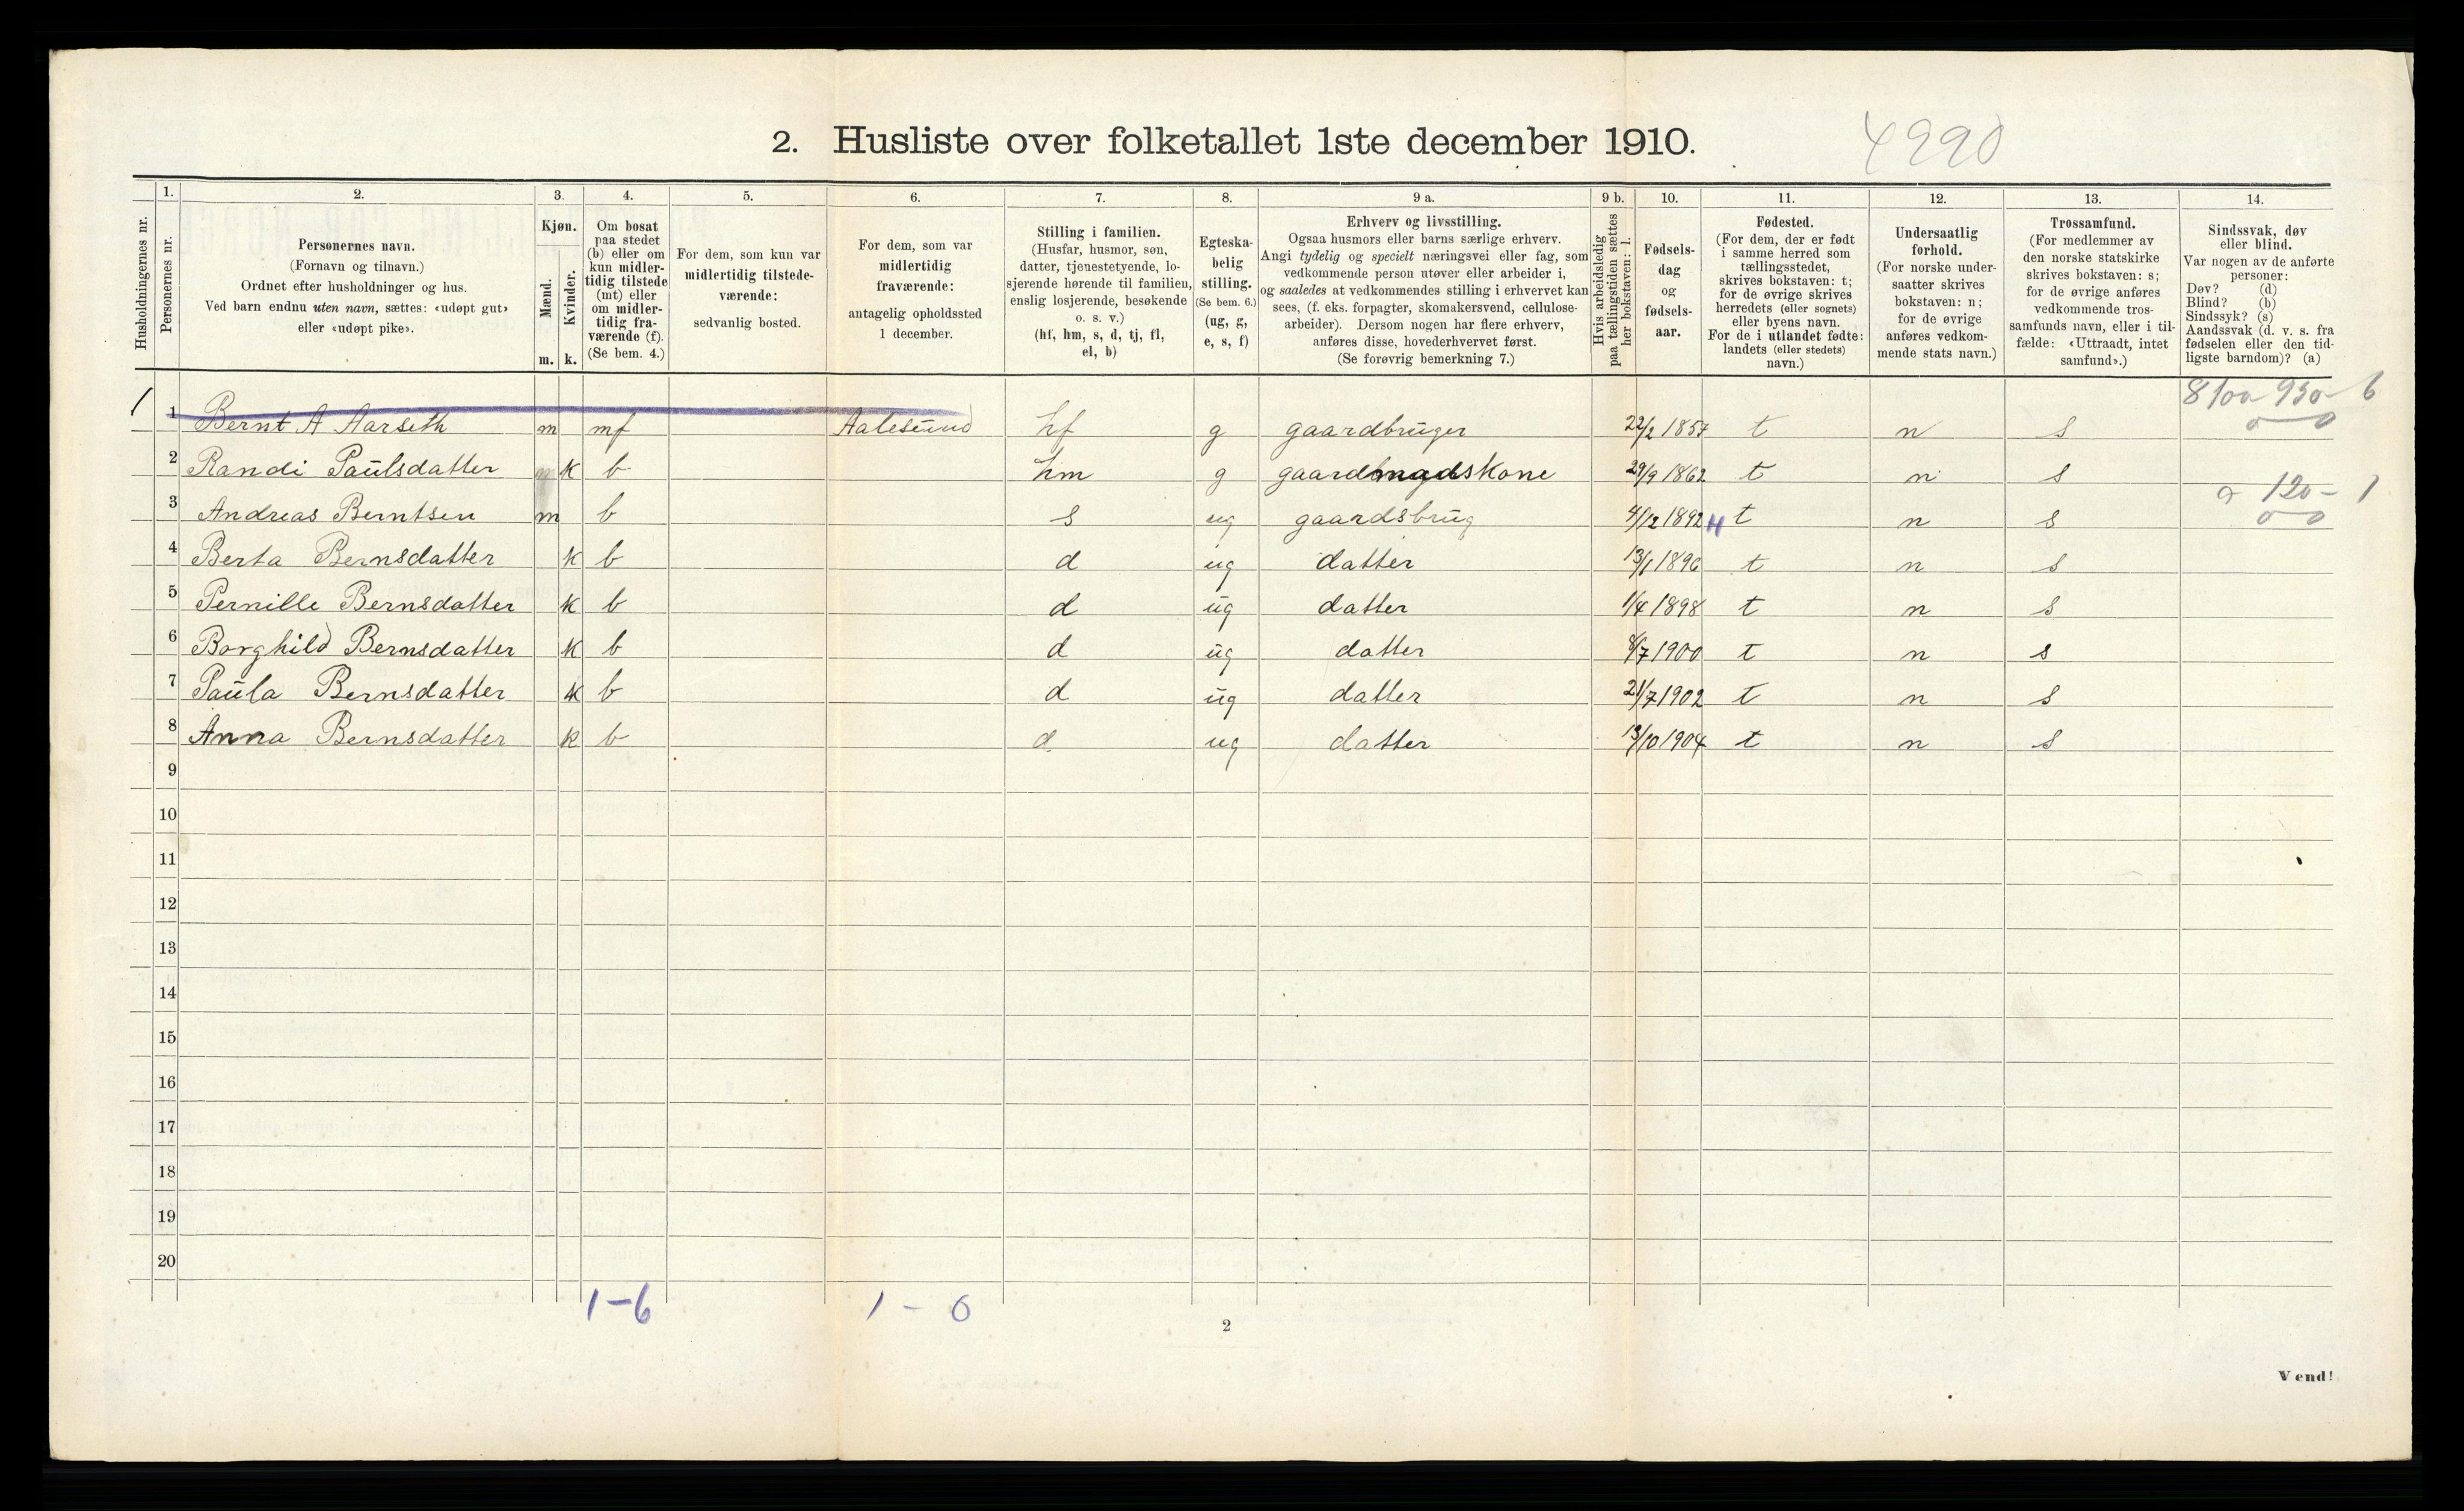 4990
2. Husliste over folketallet 1ste december 1910.
Husholdningernes nr.
1.
Personernes nr.
2.
Personernes navn.
(Fornavn og tilnavn.)
Ordnet efter husholdninger og hus.
Ved barn endnu uten navn, sættes: «udøpt gut»
eller «udøpt pike».
3.
Kjøn.
Mænd.
Kvinder.
m. k.
4.
Om bosat
paa stedet
(b) eller om
kun midler-
tidig tilstede
(mt) eller
om midler-
tidig fra-
værende (f).
(Se bem. 4.)
5.
For dem, som kun var
midlertidig tilstede-
værende:
sedvanlig bosted.
6.
For dem, som var
midlertidig
fraværende:
antagelig opholdssted
1 december.
7.
Stilling i familien.
(Husfar, husmor, søn,
datter, tjenestetyende, lo-
sjerende hørende til familien,
enslig losjerende, besøkende
o. s. v.)
(hf, hm, s, d, tj, fl,
el, b)
8.
Egteska-
belig
stilling.
(Se bem. 6.)
(ug, g,
e, s, f)
9 a.
Erhverv og livsstilling.
Ogsaa husmors eller barns særlige erhverv.
Angi tydelig og specielt næringsvei eller fag, som
vedkommende person utøver eller arbeider i,
og saaledes at vedkommendes stilling i erhvervet kan
sees, (f. eks. forpagter, skomakersvend, cellulose-
arbeider). Dersom nogen har flere erhverv,
anføres disse, hovederhvervet først.
(Se forøvrig bemerkning 7.)
9 b.
Hvis arbeidsledig
paa tællingstiden sættes
her bokstaven: l.
10.
Fødsels-
dag
og
fødsels-
aar.
11.
Fødested.
(For dem, der er født
i samme herred som
tællingsstedet,
skrives bokstaven: t;
for de øvrige skrives
herredets (eller sognets)
eller byens navn.
For de i utlandet fødte:
landets (eller stedets)
navn.)
12.
Undersaatlig
forhold.
(For norske under-
saatter skrives
bokstaven: n;
for de øvrige
anføres vedkom-
mende stats navn.)
13.
Trossamfund.
(For medlemmer av
den norske statskirke
skrives bokstaven: s;
for de øvrige anføres
vedkommende tros-
samfunds navn, eller i til-
fælde: «Uttraadt, intet
samfund».)
14.
Sindssvak, døv
eller blind.
Var nogen av de anførte
personer:
Døv? (d)
Blind? (b)
Sindssyk? (s)
Aandssvak (d. v. s. fra
fødselen eller den tid-
ligste barndom)? (a)
1 1 Bernt A Aarseth m mf Aalesund hf g gaardbruger 22/2 1857 t n s
2 Randi Paulsdatter k b hm g gaardmadskone 29/9 1862 t n s
3 Andreas Berntsen m b s ug gaardsbrug 4/12 1892 H t n s
4 Berta Bernsdatter k b d ug datter 13/1 1896 t n s
5 Pernille Bernsdatter k b d ug datter 1/4 1898 t n s
6 Borghild Bernsdatter k b d ug datter 8/7 1900 t n s
7 Paula Bernsdatter k b d ug datter 21/7 1902 t n s
8 Anna Bernsdatter k b d ug datter 13/10 1904 t n s
9
10
11
12
13
14
15
16
17
18
19
20
1-6 1 - 0
2
Vend!